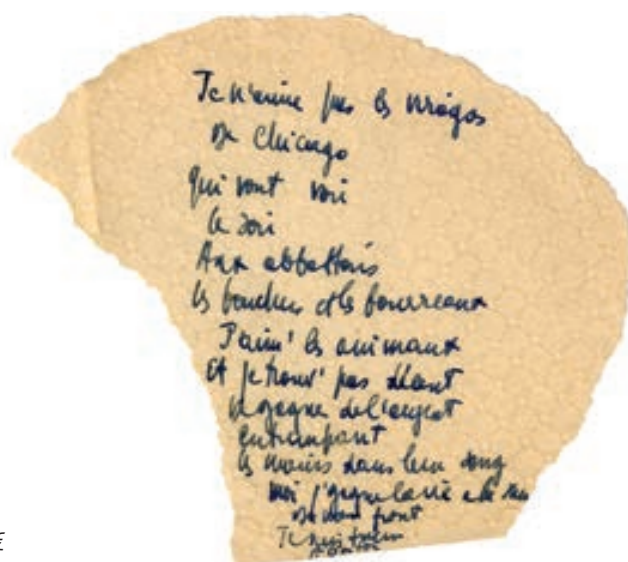 Je n'aime pas les virágos
de Chicago
qui vont voir
le soir
Aux abbattoirs
les bouchers et les bourreaux
J'aim' les animaux
Et je trouv' pas décent
de gagner de l'argent
en trempant
les mains dans leur sang
moi j'gagne la vie à la
de mon front
Je suis